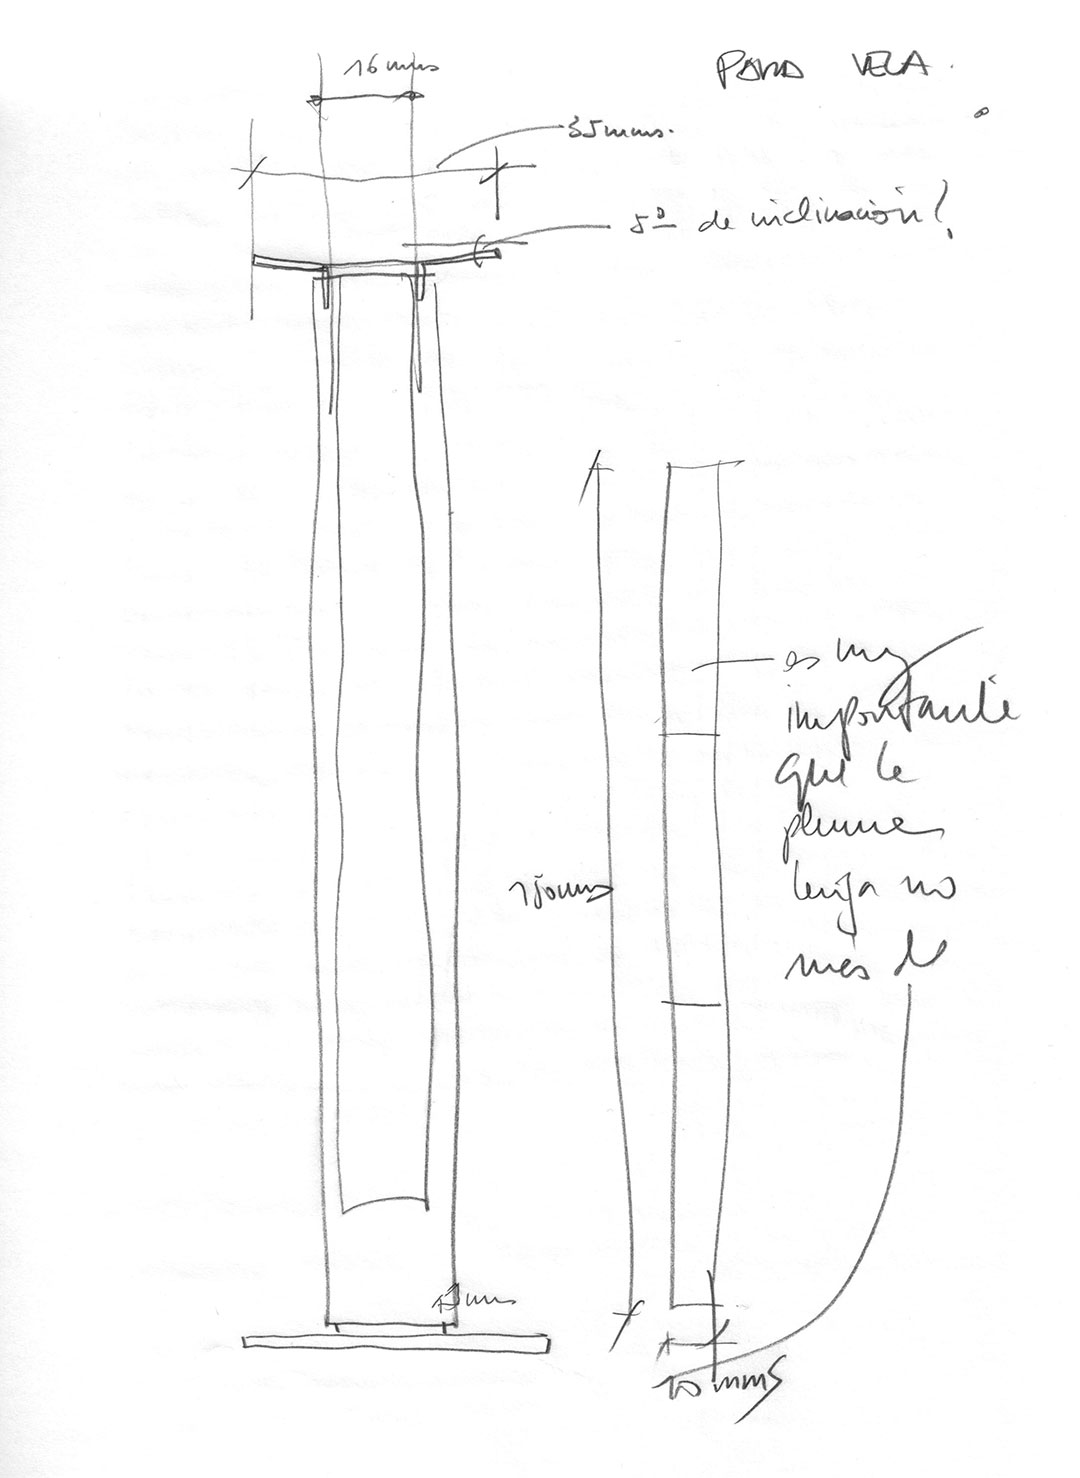 16 mms
PARA VELA.
35 mms.
5º de inclinación?
es muy
importante
que la
pluma
tenga no
más de
150mms
3 mms
10 mms